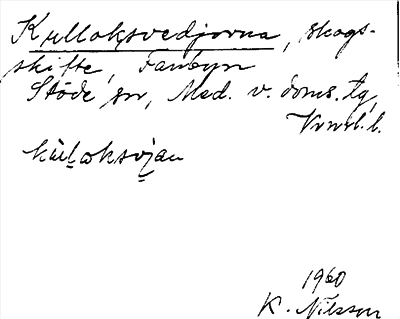 Kulloksvedjorna, skogs-
skifte, Fanbyn
Stöde sn, Med. v. doms. tg,
Vnrl. l.
kùl̬oksvj̬an
1960
K. Nilsson